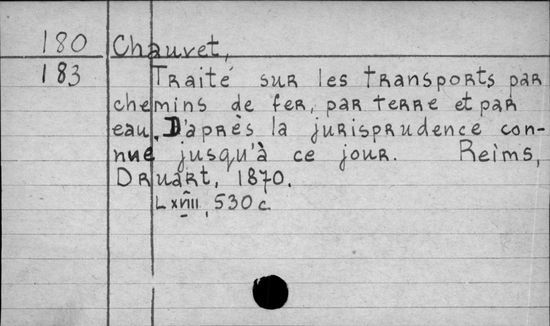 180 Chauvet,
183 Traité sur les transports par
chemins de fer, par terre et par
eau. D'après la jurisprudence con-
nue jusqu'à ce jour. Reims,
Druart, 1870.
LXVIII, 530 c.